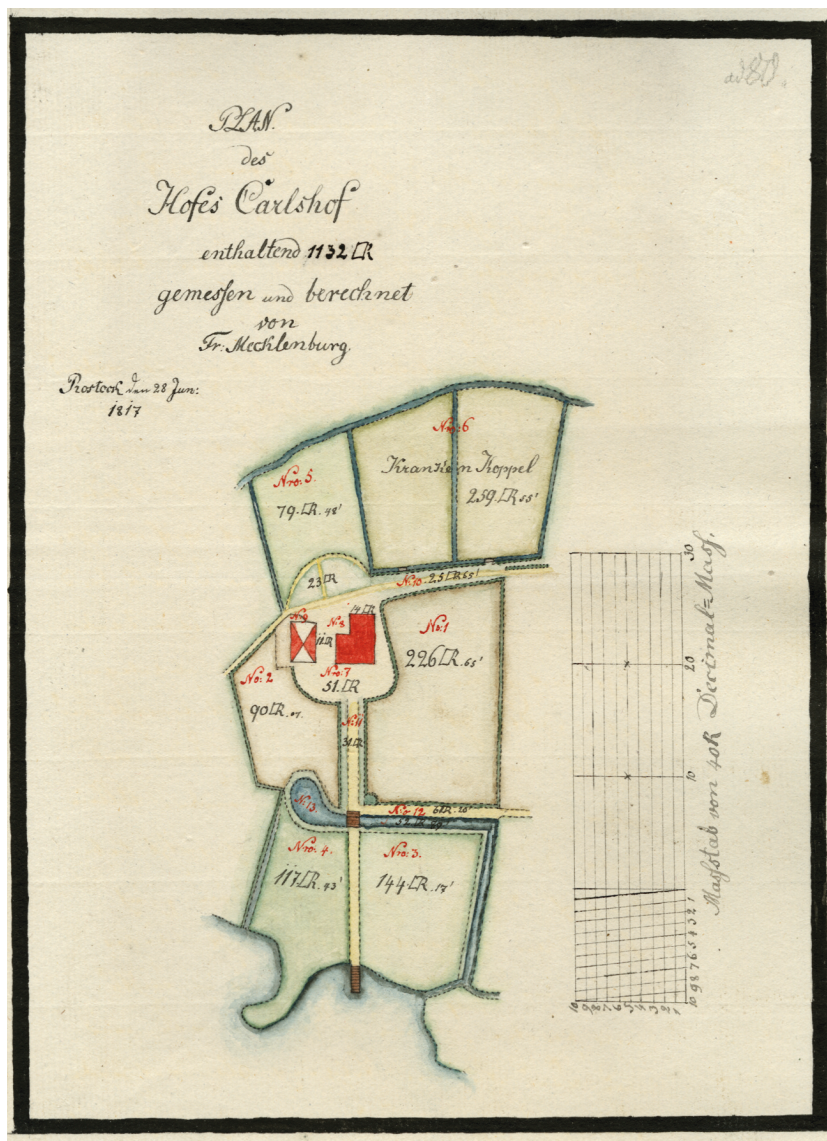 PLAN.
des
Hofes Carlshof
enthaltend 1132 □R
gemessen und berechnet
von
Fr: Mecklenburg.
Rostock den 28 Jun:
1817
Nro: 6
Koppel
259. □R 55'
Nro: 5.
79. □R. 48'
23 □R
Nro 10 25 □R 65'
14 □R
No: 9
No: 8
11 □R
No: 1
226 □R. 65'
Nro: 7
51. □R
No: 2
90 □R.
No: 11
31 □R
N: 13.
Nro 12
Nro: 4.
117 □R. 43'
Nro: 3.
144 □R. 17'
30
20
10
1
2
3
4
5
6
7
8
9
10
Maßstab von 40 R Decimal=Maß.
10